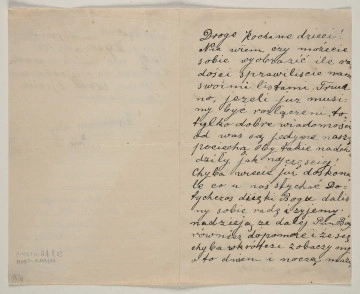 Drogie kochane dzieci!
Nie wiem czy możecie
sobie wyobrazić ile ra
dości sprawiliście nam
swoimi listami. Trud
no, jeżeli już musi
my być rozłączeni, to
tylko dobre wiadomości
od was są jedyną naszą
pociechą, oby takie nadcho
dziły jak najczęściej!
Chyba wiecie już doskona
le co u nas słychać. Do
tychczas dzięki Bogu daliś
my sobie radę i żyjemy
nadzieją, że dalej Pan Bóg
również dopomoże i że się
chyba wkrótce zobaczymy
o to dniem i nocą